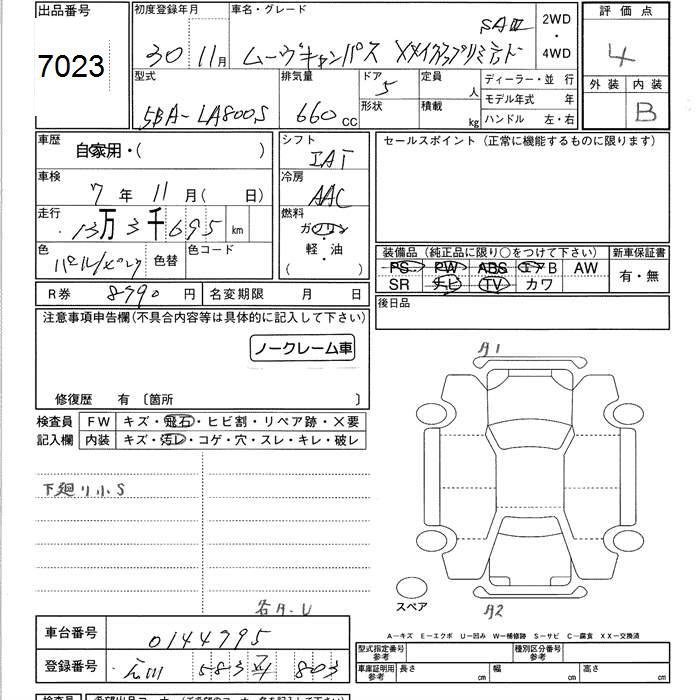 出品番号
7023
初度登録年月
30 11月
車名・グレード
ムーヴキャンバス Xメイクアップリミテッド
SAⅢ
2WD
・
4WD
評価点
4
外装 内装
B
型式
5BA-LA800S
排気量
660 cc
ドア
5
形状
定員
人
積載
kg
ディーラー・並 行
モデル年式 年
ハンドル 左・右
車歴
自家用・( )
車検
7 年 11 月( 日)
走行
13万3千695 km
色
パール/ピンク
色替
色コード
シフト
IAT
冷房
AAC
燃料
ガソリン
・
軽・油
( )
セールスポイント (正常に機能するものに限ります)
装備品 (純正品に限り○をつけて下さい)
PS PW ABS エアB AW
SR ナビ TV カワ
新車保証書
有・無
R券 8990 円
名変期限 月 日
後日品
注意事項申告欄(不具合内容等は具体的に記入して下さい)
ノークレーム車
修復歴 有 〔箇所 〕
検査員
記入欄
FW キズ・飛石・ヒビ割・リペア跡・×要
内装 キズ・汚レ・コゲ・穴・スレ・キレ・破レ
下廻り小S
各A.U
A1
A2
スペア
A-キズ E-エクボ U-凹み W-補修跡 S-サビ C-腐食 XX-交換済
車台番号
0144795
登録番号
583 803
型式指定番号
参考
種別区分番号
参考
車庫証明用
参考
長さ cm
幅 cm
高さ cm